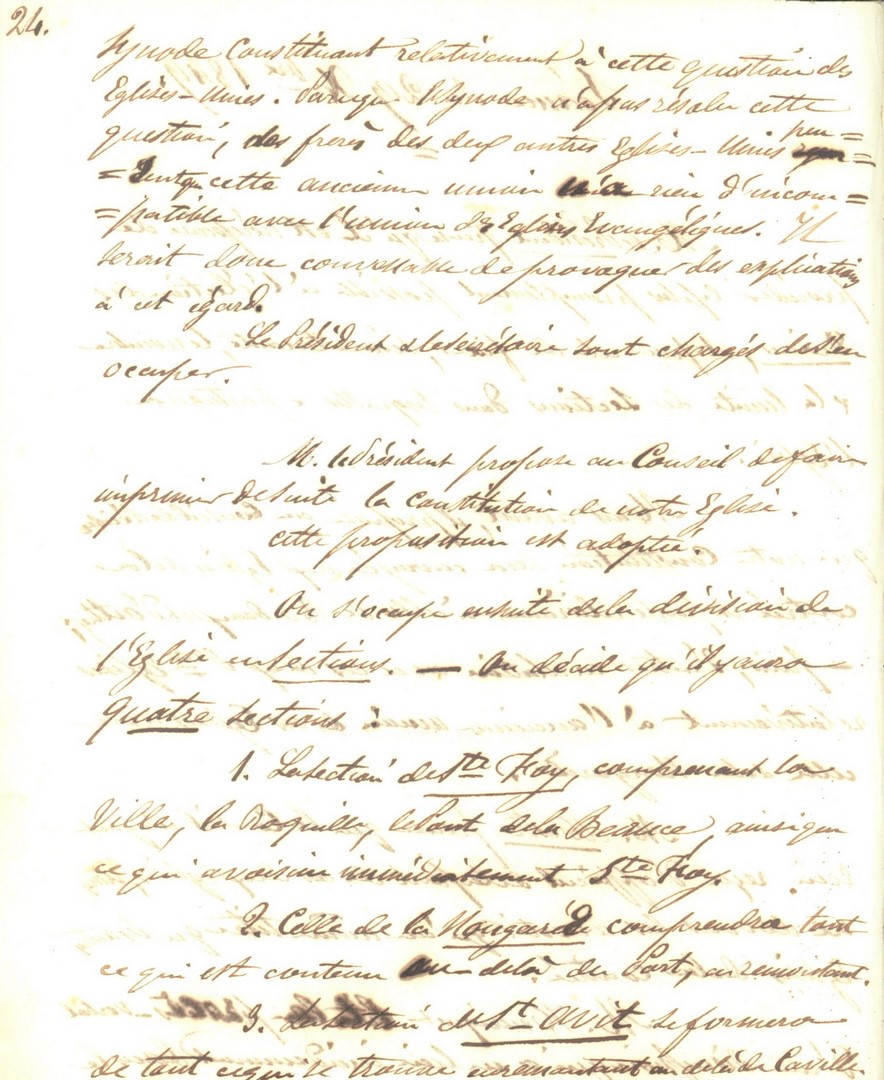 24.
Synode Constituant relativement à cette question des
Eglises-Unies. Parceque le Synode n'a pas résolu cette
question, des frères des deux autres Eglises-Unies peu=
=sent que cette ancienne union n'a rien d'incom=
=patible avec l'union des Eglises Evangéliques. Il
serait donc convenable de provoquer des explications
à cet égard.
Le Président & le secrétaire sont chargés de s'en
occuper.
M. le Président propose au Conseil de faire
imprimer de suite la Constitution de notre Eglise.
cette proposition est adoptée.
On s'occupe ensuite de la division de
l'Eglise en sections. — On décide qu'il y aura
quatre sections :
1. La section de Ste Foy, comprenant la
Ville, la Roquille, le Pont de la Beauce, ainsi que
ce qui avoisine immédiatement Ste Foy.
2. Celle de la Nougarède comprendra tout
ce qui est contenu au-delà du Port, en remontant.
3. La section de St Avit se formera
de tout ce qui se trouve en remontant au delà de